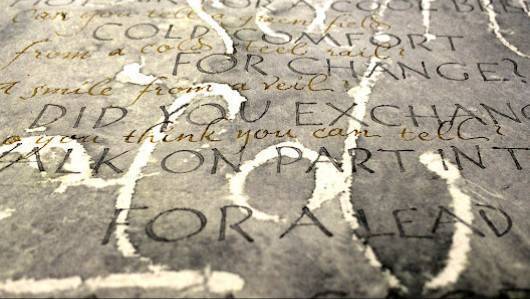 HOT AIR FOR A COOL BREE
Can you tell a green field
COLD COMFORT
from a cold steel rail?
FOR CHANGE?
A smile from a veil?
DID YOU EXCHAN
o you think you can tell?
ALK ON PART IN T
FOR A LEAD